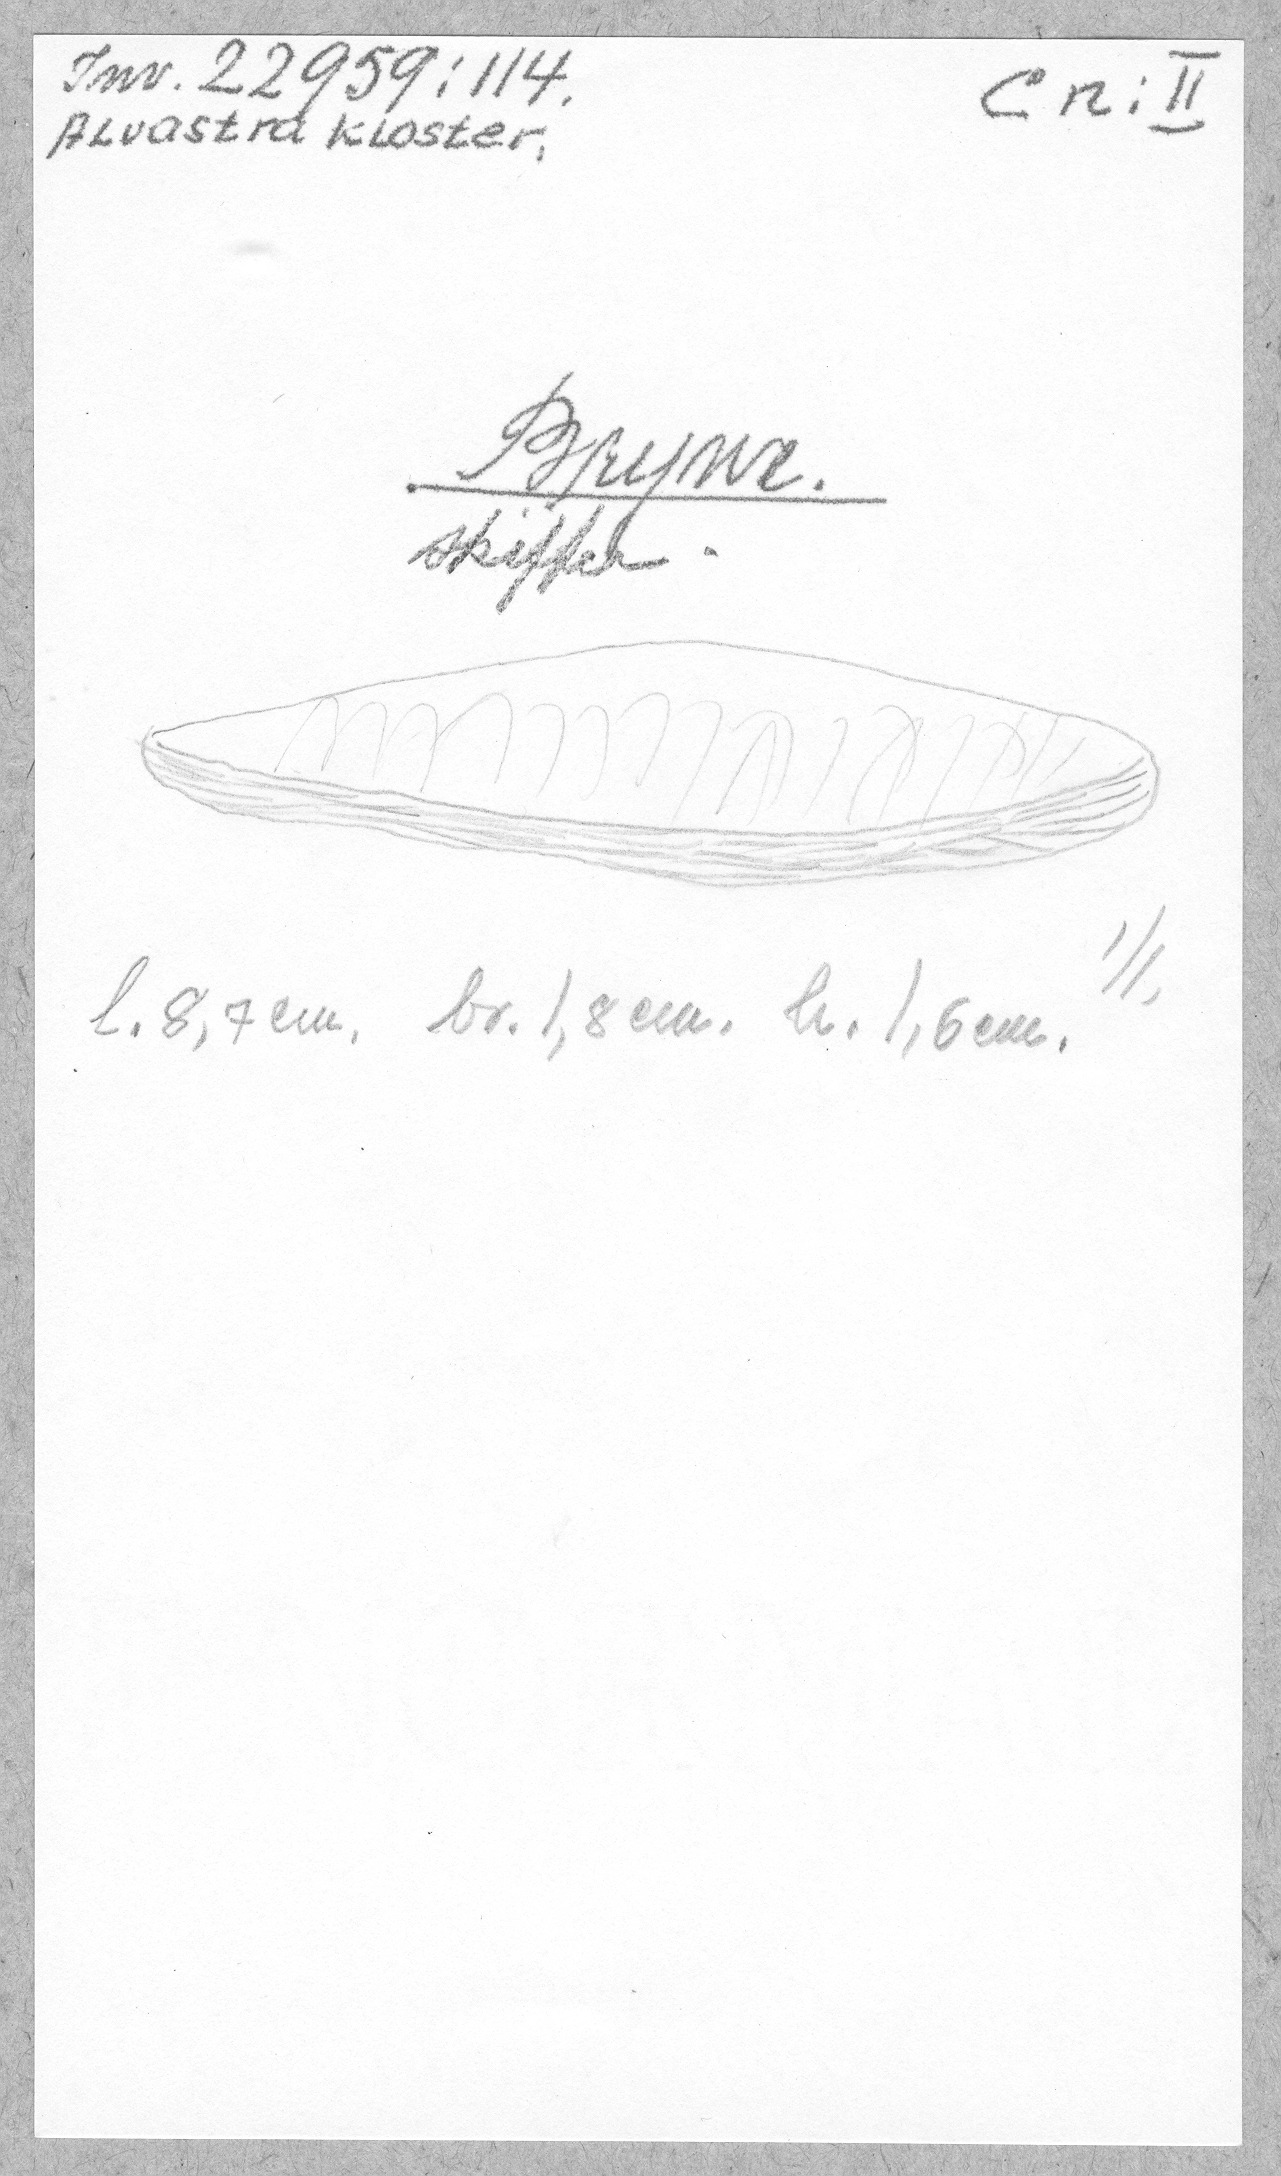 Inv. 22959:114.
C n: II
Alvastra kloster.
Bryne.
skiffer.
1/1.
l. 8,7 cm. br. 1,8 cm. h. 1,6 cm.